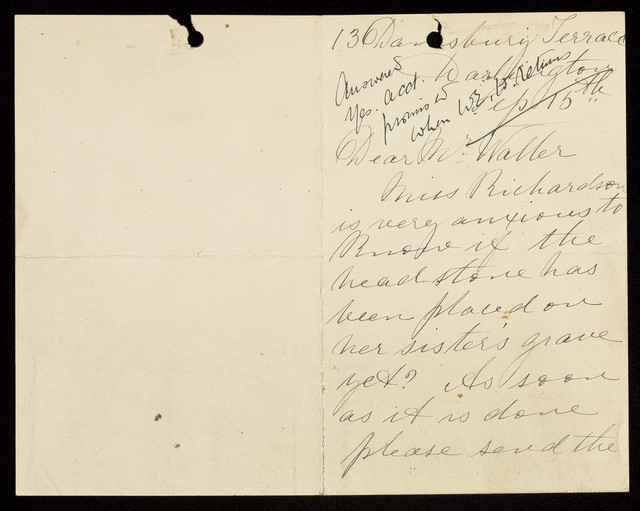 13 Danesbury Terrace
Darlington
Sep 15th
Answered
Yes. acct.
promised
when W.E.W. returns
Dear Mr Waller
Miss Richardson
is very anxious to
know if the
head stone has
been placed on
her sister's grave
yet? As soon
as it is done
please send the